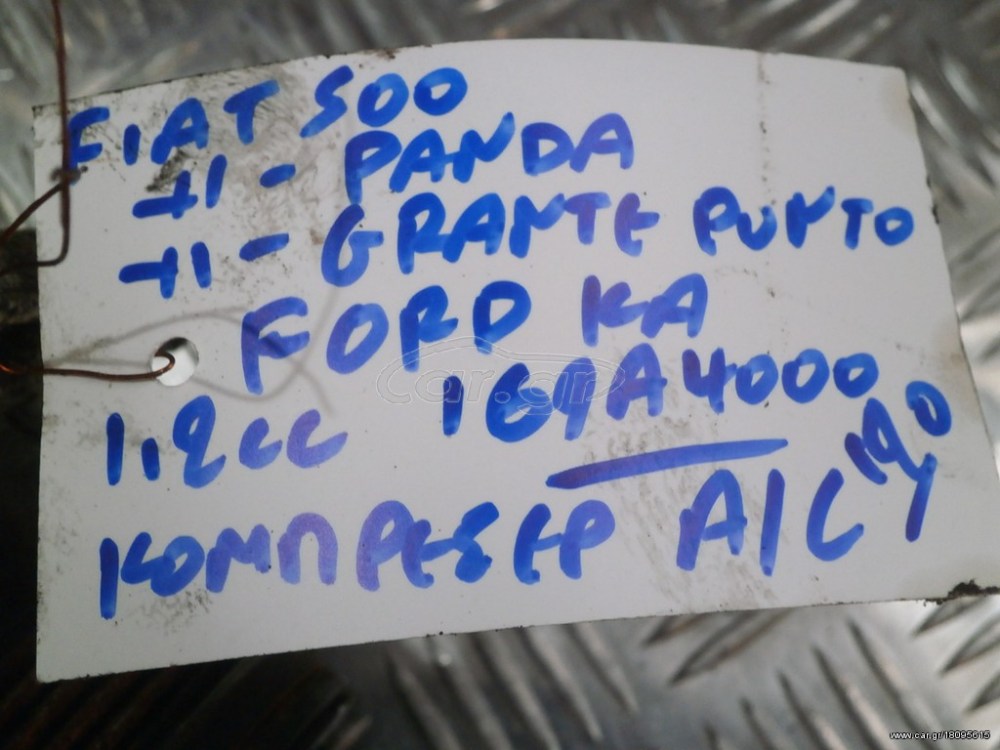 FIAT 500
-11- PANDA
-11- GRANTE PUNTO
FORD KA
1.2cc 169A4000
ΚΟΜΠΡΕΣΕΡ A/C
car.gr
www.car.gr/18095615